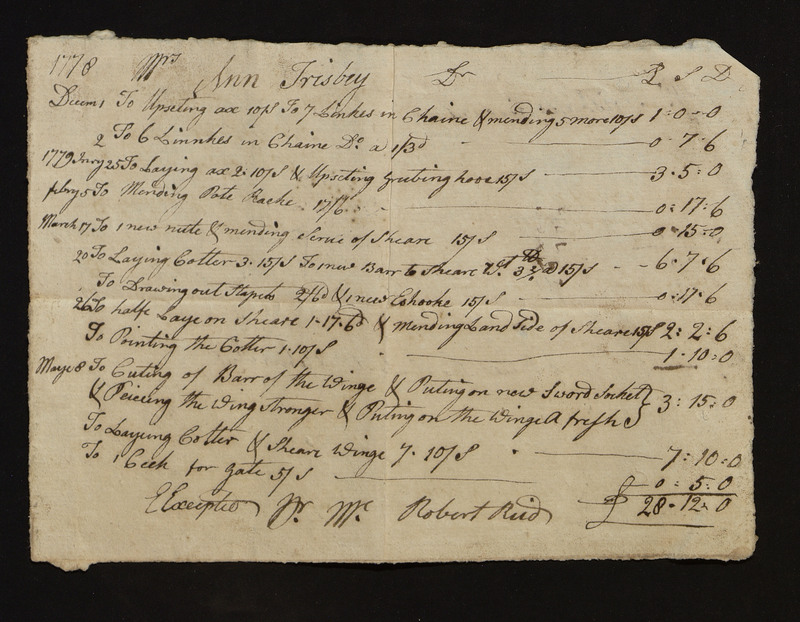 1778 Mrs Ann Frisbey Dr £ S D
Decem 1 To Upseting ax 10/S To 7 Linkes in Chaine & mending 5 more 10/S 1=0=0
2 To 6 Linnkes in Chaine Do a 1/3d 0=7=6
1779 Jnry 25 To Laying ax 2=10/S & Upseting Grubing hooe 15/S 3=5=0
febry 5 To Mending Pote Racke 17/6 0=17=6
March 17 To 1 new nute & mending Scrue of Sheare 15/S 0=15=0
20 To Laying Cotter 3=15/S To 1 new Barr to Sheare 15/S 6=7=6
To Drawing out Stapels 2/6d & 1 new Eshooke 15/S 0=17=6
26 To halfe Laye on Sheare 1=17=6d & Mending Land Side of Sheare 15/S 2=2=6
To Pointing the Cotter 1=10/S 1=10=0
Maye 8 To Cuting of Barr of the Winge & Puting on new Sword Socket
& Peiceing the Wing Stronger & Puting on the Winge A fresh } 3=15=0
To Layeing Cotter & Sheare Winge 7=10/S 7=10=0
To 1 for gate 5/S 0=5=0
EExcepted Pr. Me Robert Reid £ 28=12=0